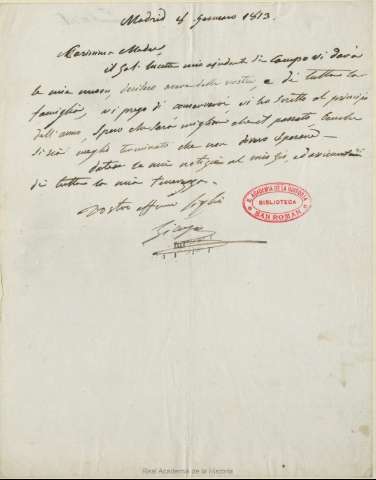 Madrid 4 gennaro 1813.
Carissima Madre
il Sol. mio ajudante di Campo vi darà
le mie nuove, desidero avere delle vostre, e di tutta la
famiglia, vi prego di conservarvi vi ho scritto al principio
dell'anno, spero che sarà migliore che il passato benche
si sia meglio terminato che non
date le mie notizie al mio zio, ed
di tutta la mia tenerezza.
vostro affmo figlio
R. ACADEMIA DE LA HISTORIA
BIBLIOTECA
SAN ROMAN
Real Academia de la Historia